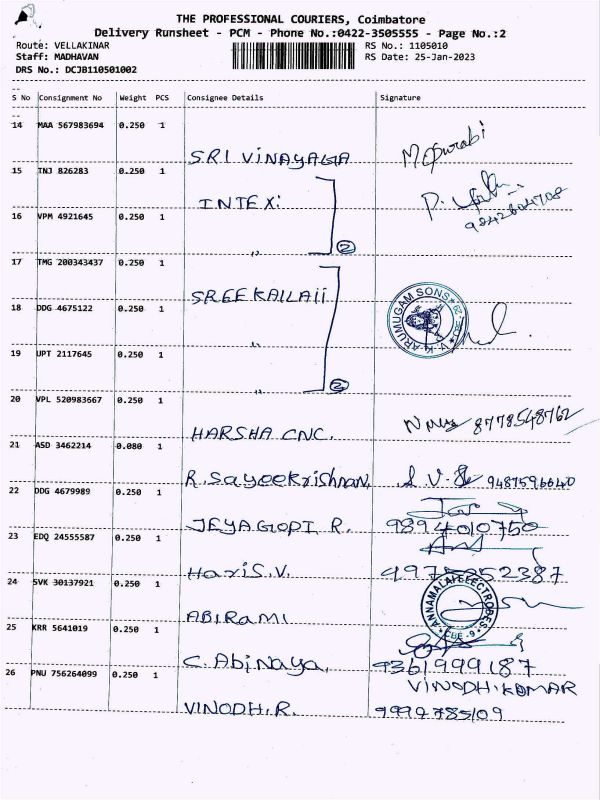 THE PROFESSIONAL COURIERS, Coimbatore
Delivery Runsheet - PCM - Phone No.:0422-3505555 - Page No.:2
Route: VELLAKINAR RS No.: 1105010
Staff: MADHAVAN RS Date: 25-Jan-2023
DRS No.: DCJB110501002
S No Consignment No Weight PCS Consignee Details Signature
14 MAA 567983694 0.250 1
SRI VINAYAGA
15 TNJ 826283 0.250 1
INTEXi
16 VPM 4921645 0.250 1
" 2
17 TMG 200343437 0.250 1
SREEKAILAII
18 DDG 4675122 0.250 1
" V. K. ARUMUGAM SONS
19 UPT 2117645 0.250 1
" 2
20 VPL 520983667 0.250 1
HARSHA CNC. 8778548762
21 ASD 3462214 0.080 1
R. Sayeekrishnan, 9487596040
22 DDG 4679989 0.250 1
JEYAGOPI R. 9894010750
23 EDQ 24555587 0.250 1
Haris.V.
24 SVK 30137921 0.250 1
ABIRAMI ANNAMALAI ELECTRODES CBE-9
25 KRR 5641019 0.250 1
C. Abinaya, 9361999187
26 PNU 756264099 0.250 1 VINODH.KUMAR
VINODH.R.